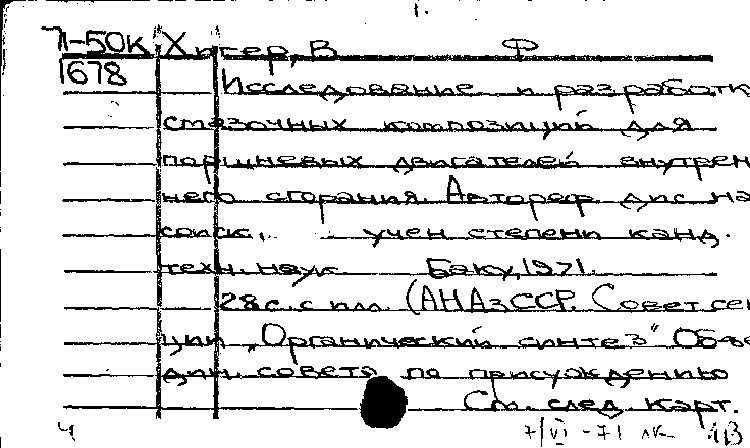 1.
Л-50к Хитер, В Ф
1678
Исследование и разработк
смазочных композиций для
поршневых двигателей внутрен
него сгорания. Автореф. дис на
соиск. учен степени канд.
техн. наук Баку, 1971.
28с. с илл. (АН АзССР. Совет сек
ции „Органический синтез" Объе
дин. совета по присуждению
См. след. карт.
4 7/VI -71